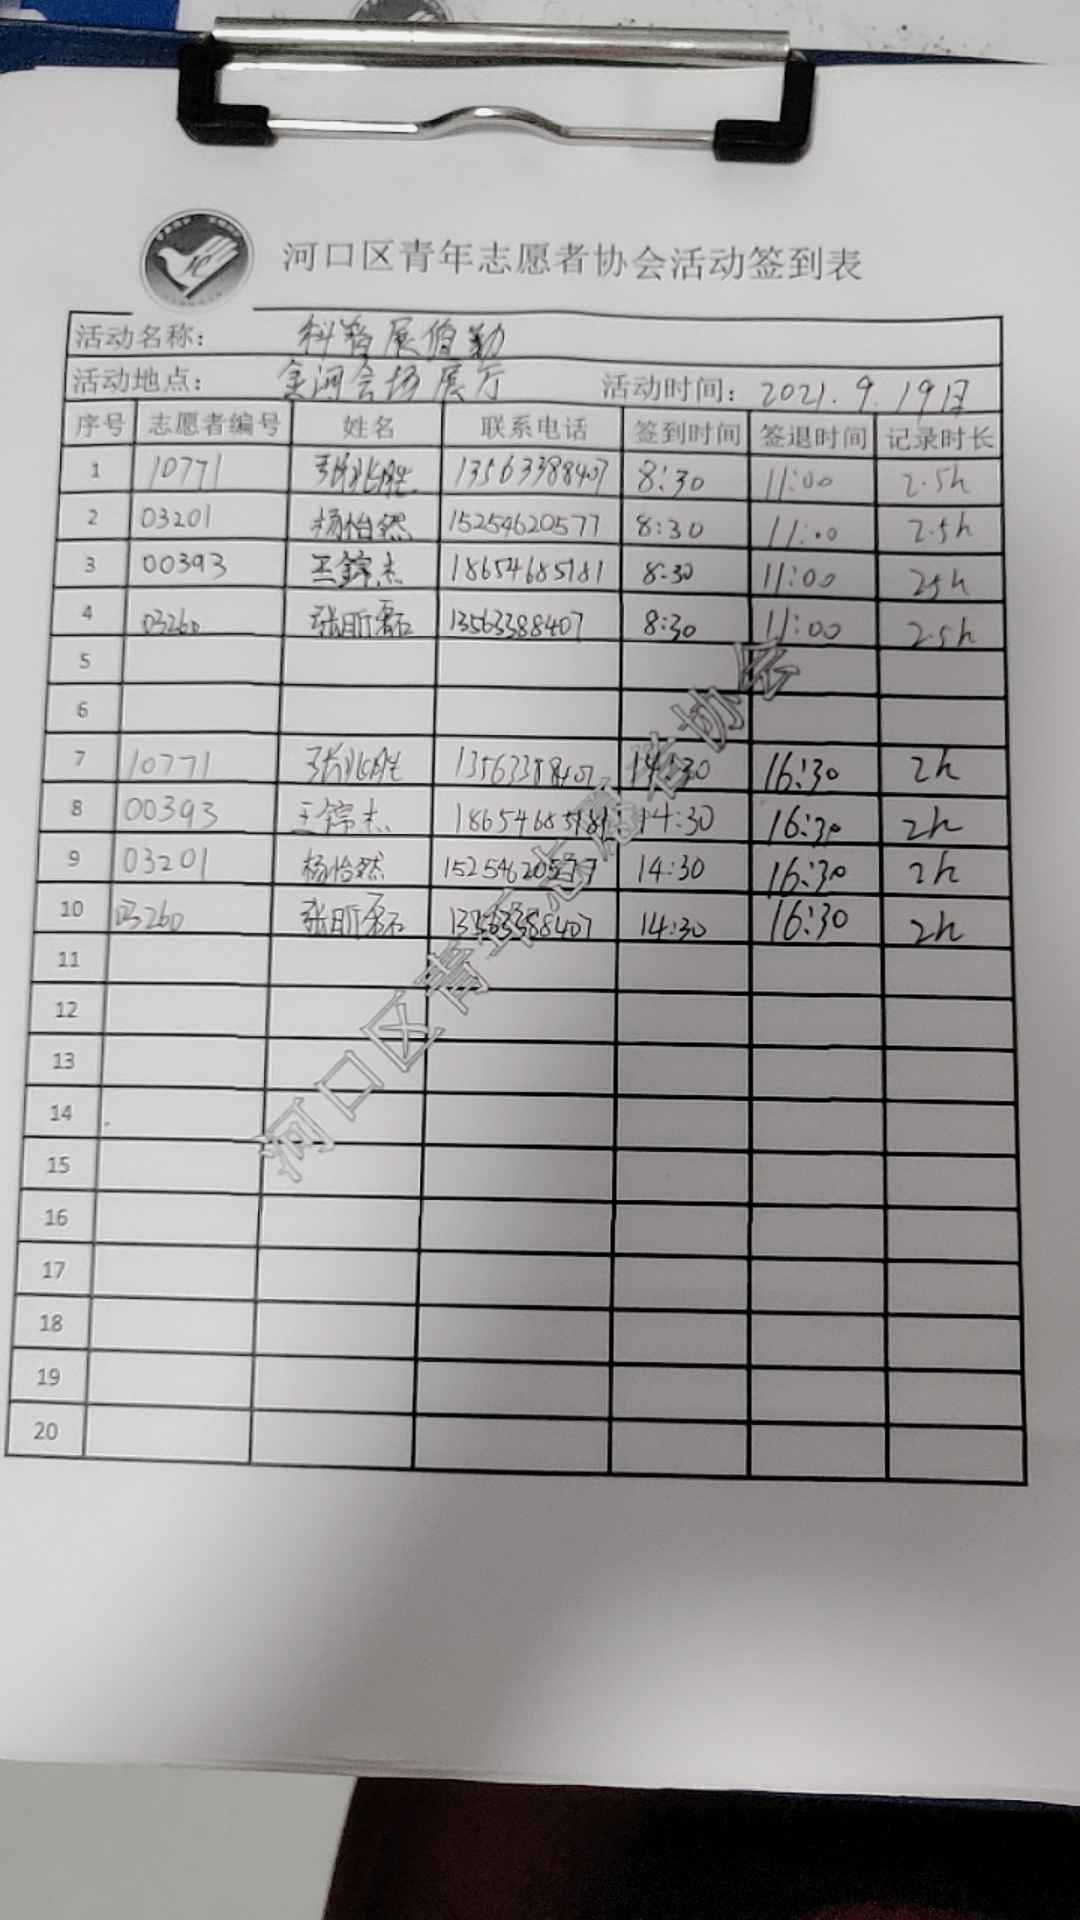 河口区青年志愿者协会活动签到表
活动名称： 科普展值勤
活动地点： 金河会场展厅 活动时间： 2021.9.19日
序号 志愿者编号 姓名 联系电话 签到时间 签退时间 记录时长
1 10771 张兆胜 13563388407 8:30 11:00 2.5h
2 03201 杨怡然 15254620577 8:30 11:00 2.5h
3 00393 王锦杰 18654685181 8:30 11:00 25h
4 03260 张昕磊 13563388407 8:30 11:00 2.5h
5
6
7 10771 张兆胜 13563388407 14:30 16:30 2h
8 00393 王锦杰 18654685181 14:30 16:30 2h
9 03201 杨怡然 15254620577 14:30 16:30 2h
10 03260 张昕磊 13563388407 14:30 16:30 2h
11
12
13
14
15
16
17
18
19
20
河口区青年志愿者协会